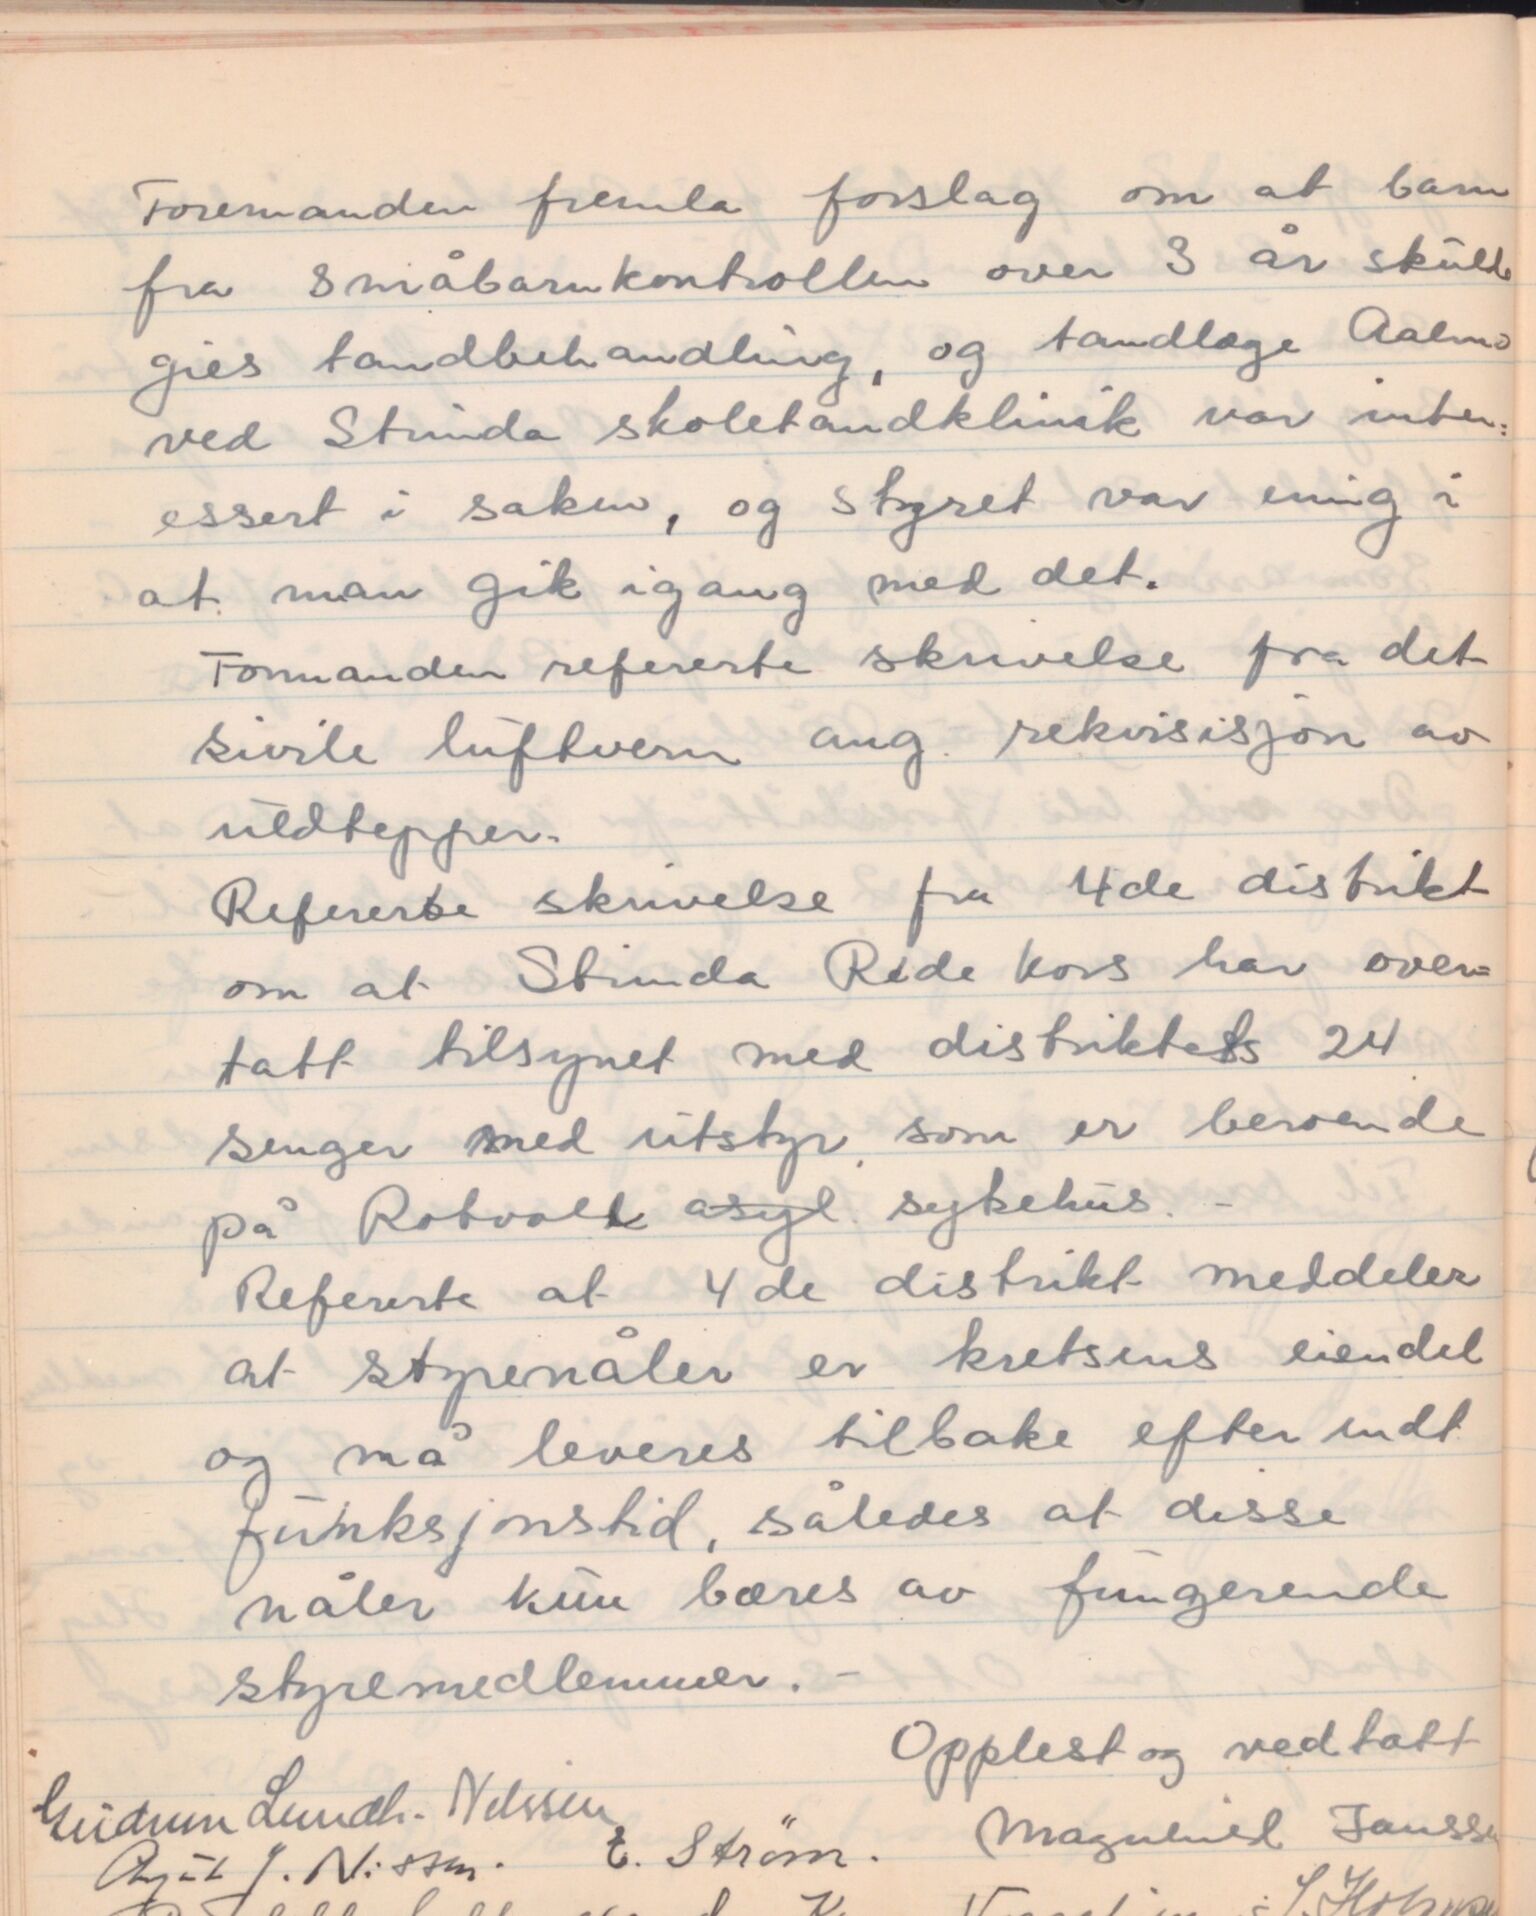 Foremanden fremla forslag om at barn
fra småbarnkontrollen over 3 år skulde
gies tandbehandling, og tandlæge Aalmo
ved Strinda skoletandklinik var inter=
essert i saken, og styret var enig i
at man gik igang med det.
Formanden refererte skrivelse fra det
sivile luftvern ang. rekvisisjon av
uldtepper.
Refererte skrivelse fra 4de distrikt
om at Strinda Røde Kors har over=
tatt tilsynet med distriktets 24
senger med utstyr, som er beroende
på Rotvoll asyl sykehus. -
Refererte at 4de distrikt meddeler
at styrenåler er kretsens eiendel
og må leveres tilbake efter endt
funksjonstid, således at disse
nåler kun bæres av fungerende
styremedlemmer. -
Opplest og vedtatt
Gudrun Lundh-Nilssen
J. Nissen. E. Strøm. Magnhild Jansse